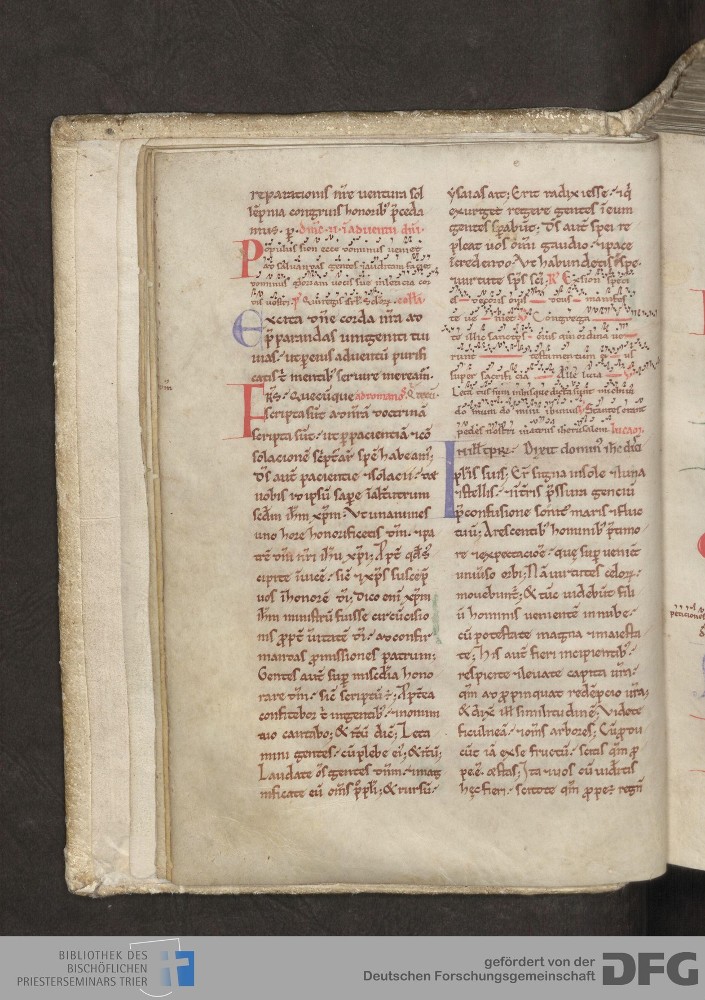 reparationis nr̄e uentura sol
lēpnia congruis honorib' p̄ceda
mus. p.
Populus sion ecce dominus ueniet
ad saluandas gentes & auditam faciet
dominus gloriam uocis sue in leticia cor
dis uestri
Excita dn̄e corda nr̄a ad
p̄parandas unigeniti tui
uias. ut per eius aduentū purifi
catis t' mentib' seruire meream̄.
Fr̄s. Quecumque ad romanos
scripta sūt ad nr̄am doctrinā
scripta sūt. ut per pacientiā & cō
solacionē scēptar̄ spē habeam';
Ds̄ aut̄ paciencie & solacii. det
uobis id ipsū sapere in alt̄utrum
scdm ih̄m xp̄m; Ut unanimes
uno hore honorificetis dm̄. & pa
trē dn̄i nr̄i ih̄u xp̄i; Apt̄ qd̄ sus
cipite inuicē. sic̄ & xp̄s suscep̄
uos in honorē di; Dico enī xp̄m
ih̄m ministrū fuisse circūcisio
nis ppt̄ ueritatē di. ad confir
mandas promissiones patrum;
Gentes aut̄ sup misc̄dia hono
rare dm̄. sic̄ scriptū ē; Apt̄ea
confitebor t' in gentib'. & nomini
tuo cantabo; & itū dic̄; Leta
mini gentes. cū plebe ei'; & itū;
Laudate oms̄ gentes dn̄m. & mag
nificate eū oms̄ p̄pli; & rursū.
ysaias ait; Erit radix iesse. & q̄
exurget regere gentes in eum
gentes sp̄abūt; Ds̄ aut̄ spei re
pleat uos om̄i gaudio. & pace
in credendo. Ut habundetis in spe.
& uirtute sp̄s sc̄i. Ex sion speci
es decoris eius deus manifes
te ue niet Congrega
te illic sanctos eius qui ordina ue
runt testamentum eius
super sacrificia Alle luia
Letatus sum in his que dicta sunt michi in
domum domini ibimus Stantes erant
pedes nostri in atriis iherusalem lucam
In ill' tp̄r. Dixit dominus ih̄c disci
pl̄is suis; Er̄ signa in sole & luna
& stellis. & in tr̄is p̄ssura genciū
p̄ confusione sonit' maris & fluc
tuū; Arescentib' hominib' p̄ timo
re & expectaciōe. que sup uenient
uniuso orbi; Nā uirtutes celor̄
mouebunt̄; & tūc uidebūt fili
ū hominis uenientē in nube.
cū potestate magna & maiesta
te; His aut̄ fieri incipientib'
respicite & leuate capita ur̄a.
qm̄ ad propinquat redēpcio ur̄a;
& dix̄ ill' similitudinē; Uidete
ficulneā. & om̄s arbores; Cū produ
cūt ia ex se fructū. scitis qm̄ p
pe ē. estas; Ita & uos cū uid̄itis
hec fieri. scitote qm̄ prope ē regn̄
BIBLIOTHEK DES
BISCHÖFLICHEN
PRIESTERSEMINARS TRIER
gefördert von der
Deutschen Forschungsgemeinschaft
DFG